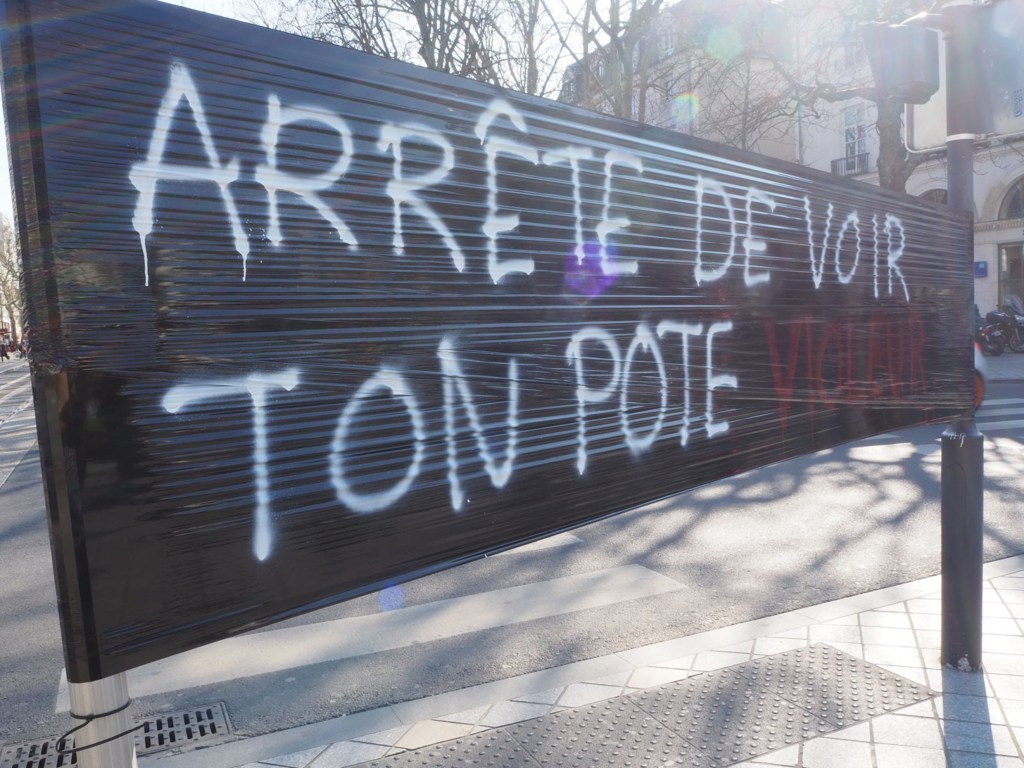 ARRÊTE DE VOIR
TON POTE VIOLEUR